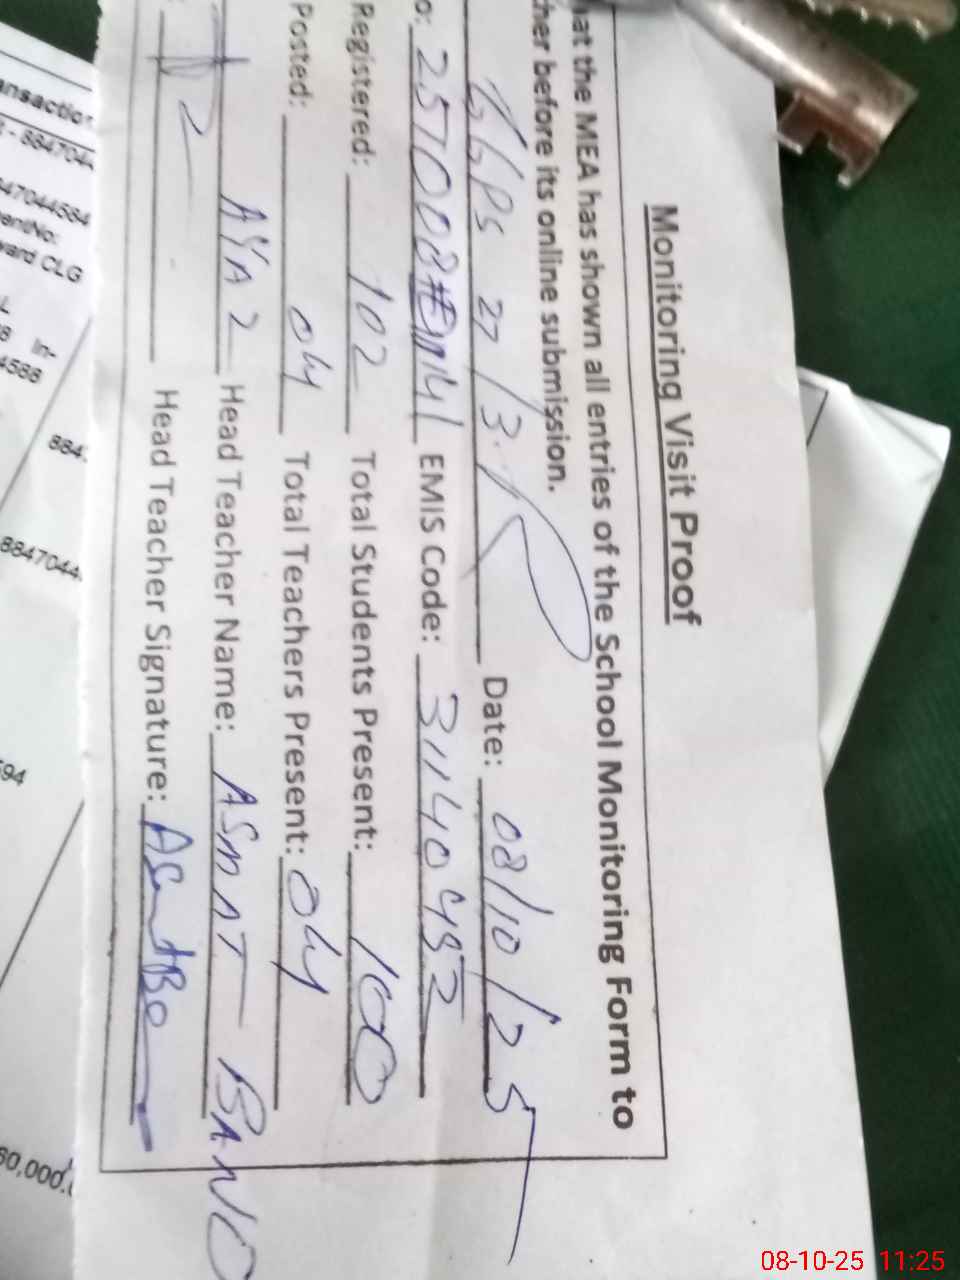 Monitoring Visit Proof
hat the MEA has shown all entries of the School Monitoring Form to
her before its online submission.
GGPS 27/3.R Date: 08/10/25
o: 257008 EMIS Code: 31140452
Registered: 102 Total Students Present: 100
Posted: 04 Total Teachers Present: 04
AYAZ Head Teacher Name: ASMAT BANO
Head Teacher Signature:
nsaction
- 884704
47044584
entNo:
ward CLG
In-
4588
884
8847044
594
08-10-25 11:25